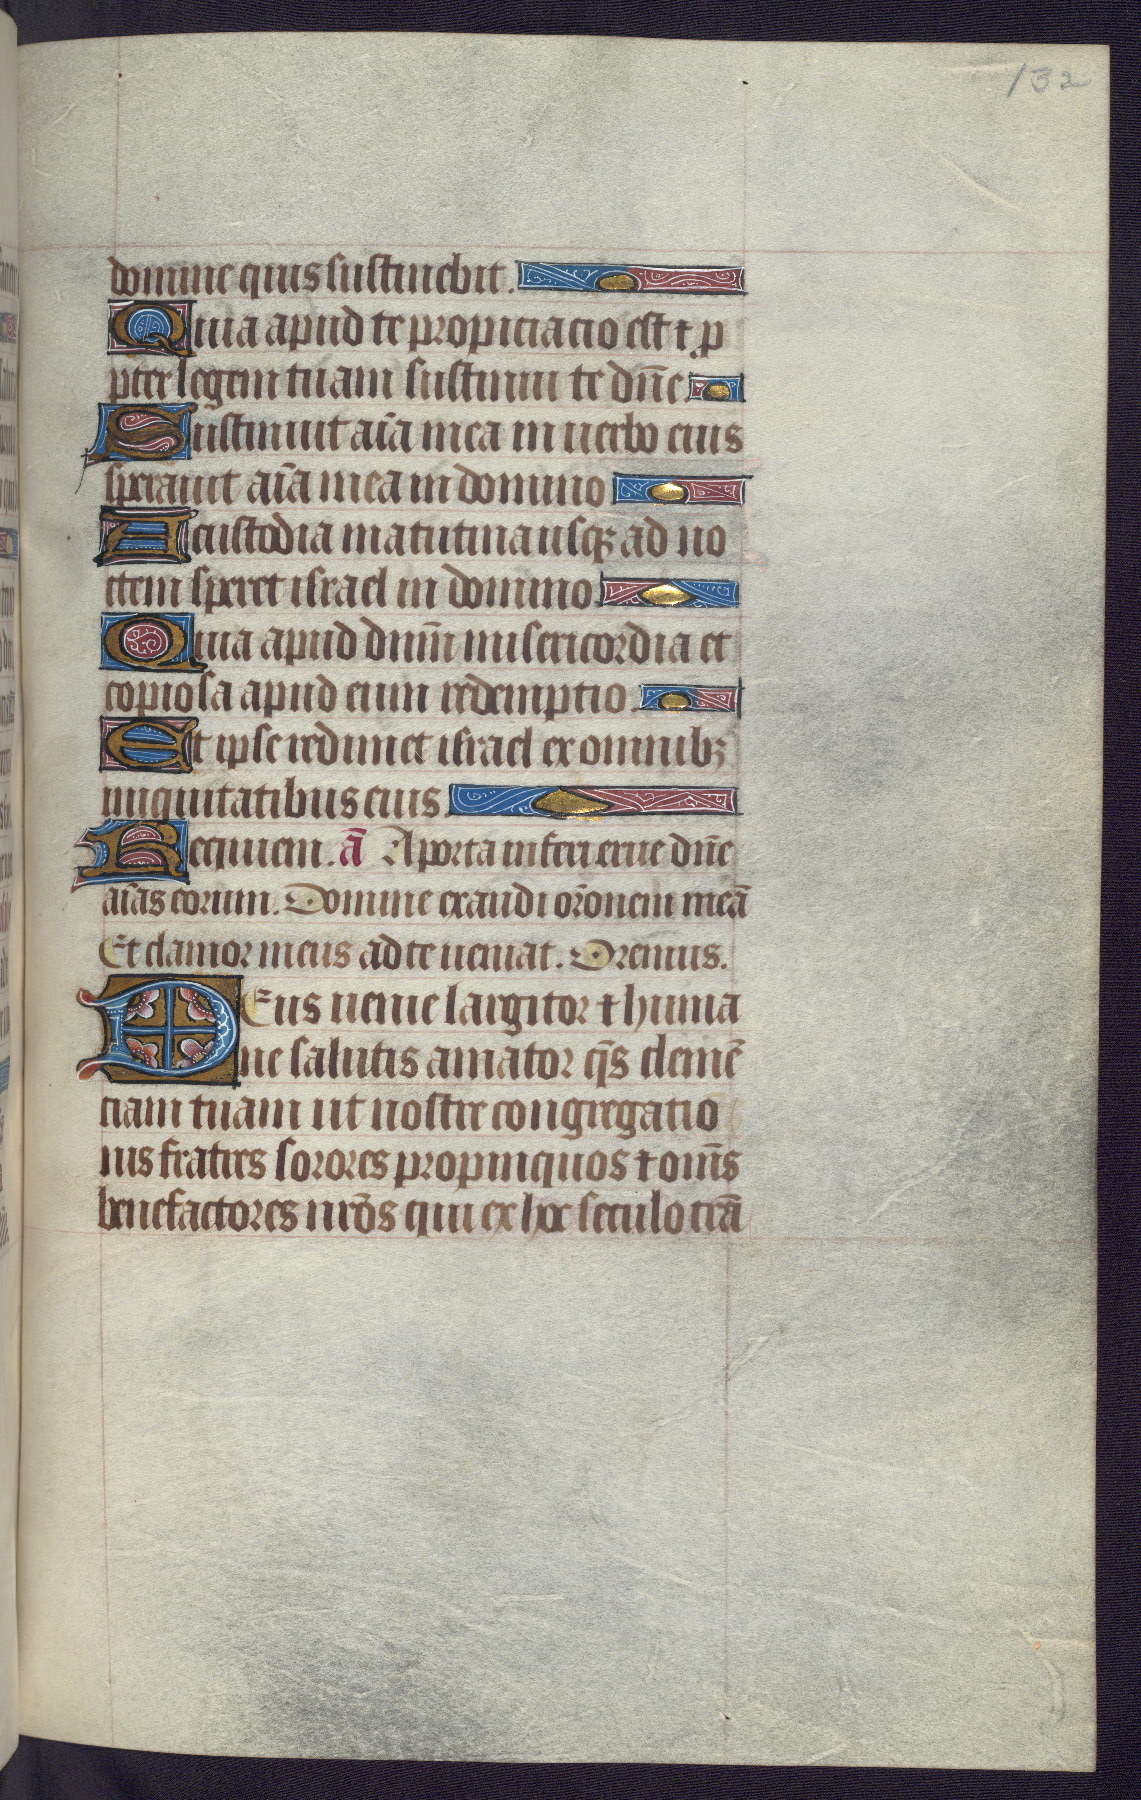 132
domine quis sustinebit.
Quia apud te propiciacio est ⁊ p
pter legem tuam sustinui te dn̄e
Sustinuit aīa mea in uerbo eius
sperauit aīa mea in domino
A custodia matutina usqꝫ ad no
ctem speret israel in domino.
Quia apud dnm̄ misericordia et
copiosa apud eum redemptio.
Et ipse redimet israel ex omnibꝫ
iniquitatibus eius.
Requiem. ā A porta inferi erue dn̄e
aīas eorum. Domine exaudi or̄onem meā
Et clamor meus ad te ueniat. Oremus.
DEus uenie largitor ⁊ huma
ne salutis amator qs̄ clemē
ciam tuam ut nostre congregatio
nis fratres sorores propinquos ⁊ om̄s
benefactores nr̄os qui ex hoc seculo trā